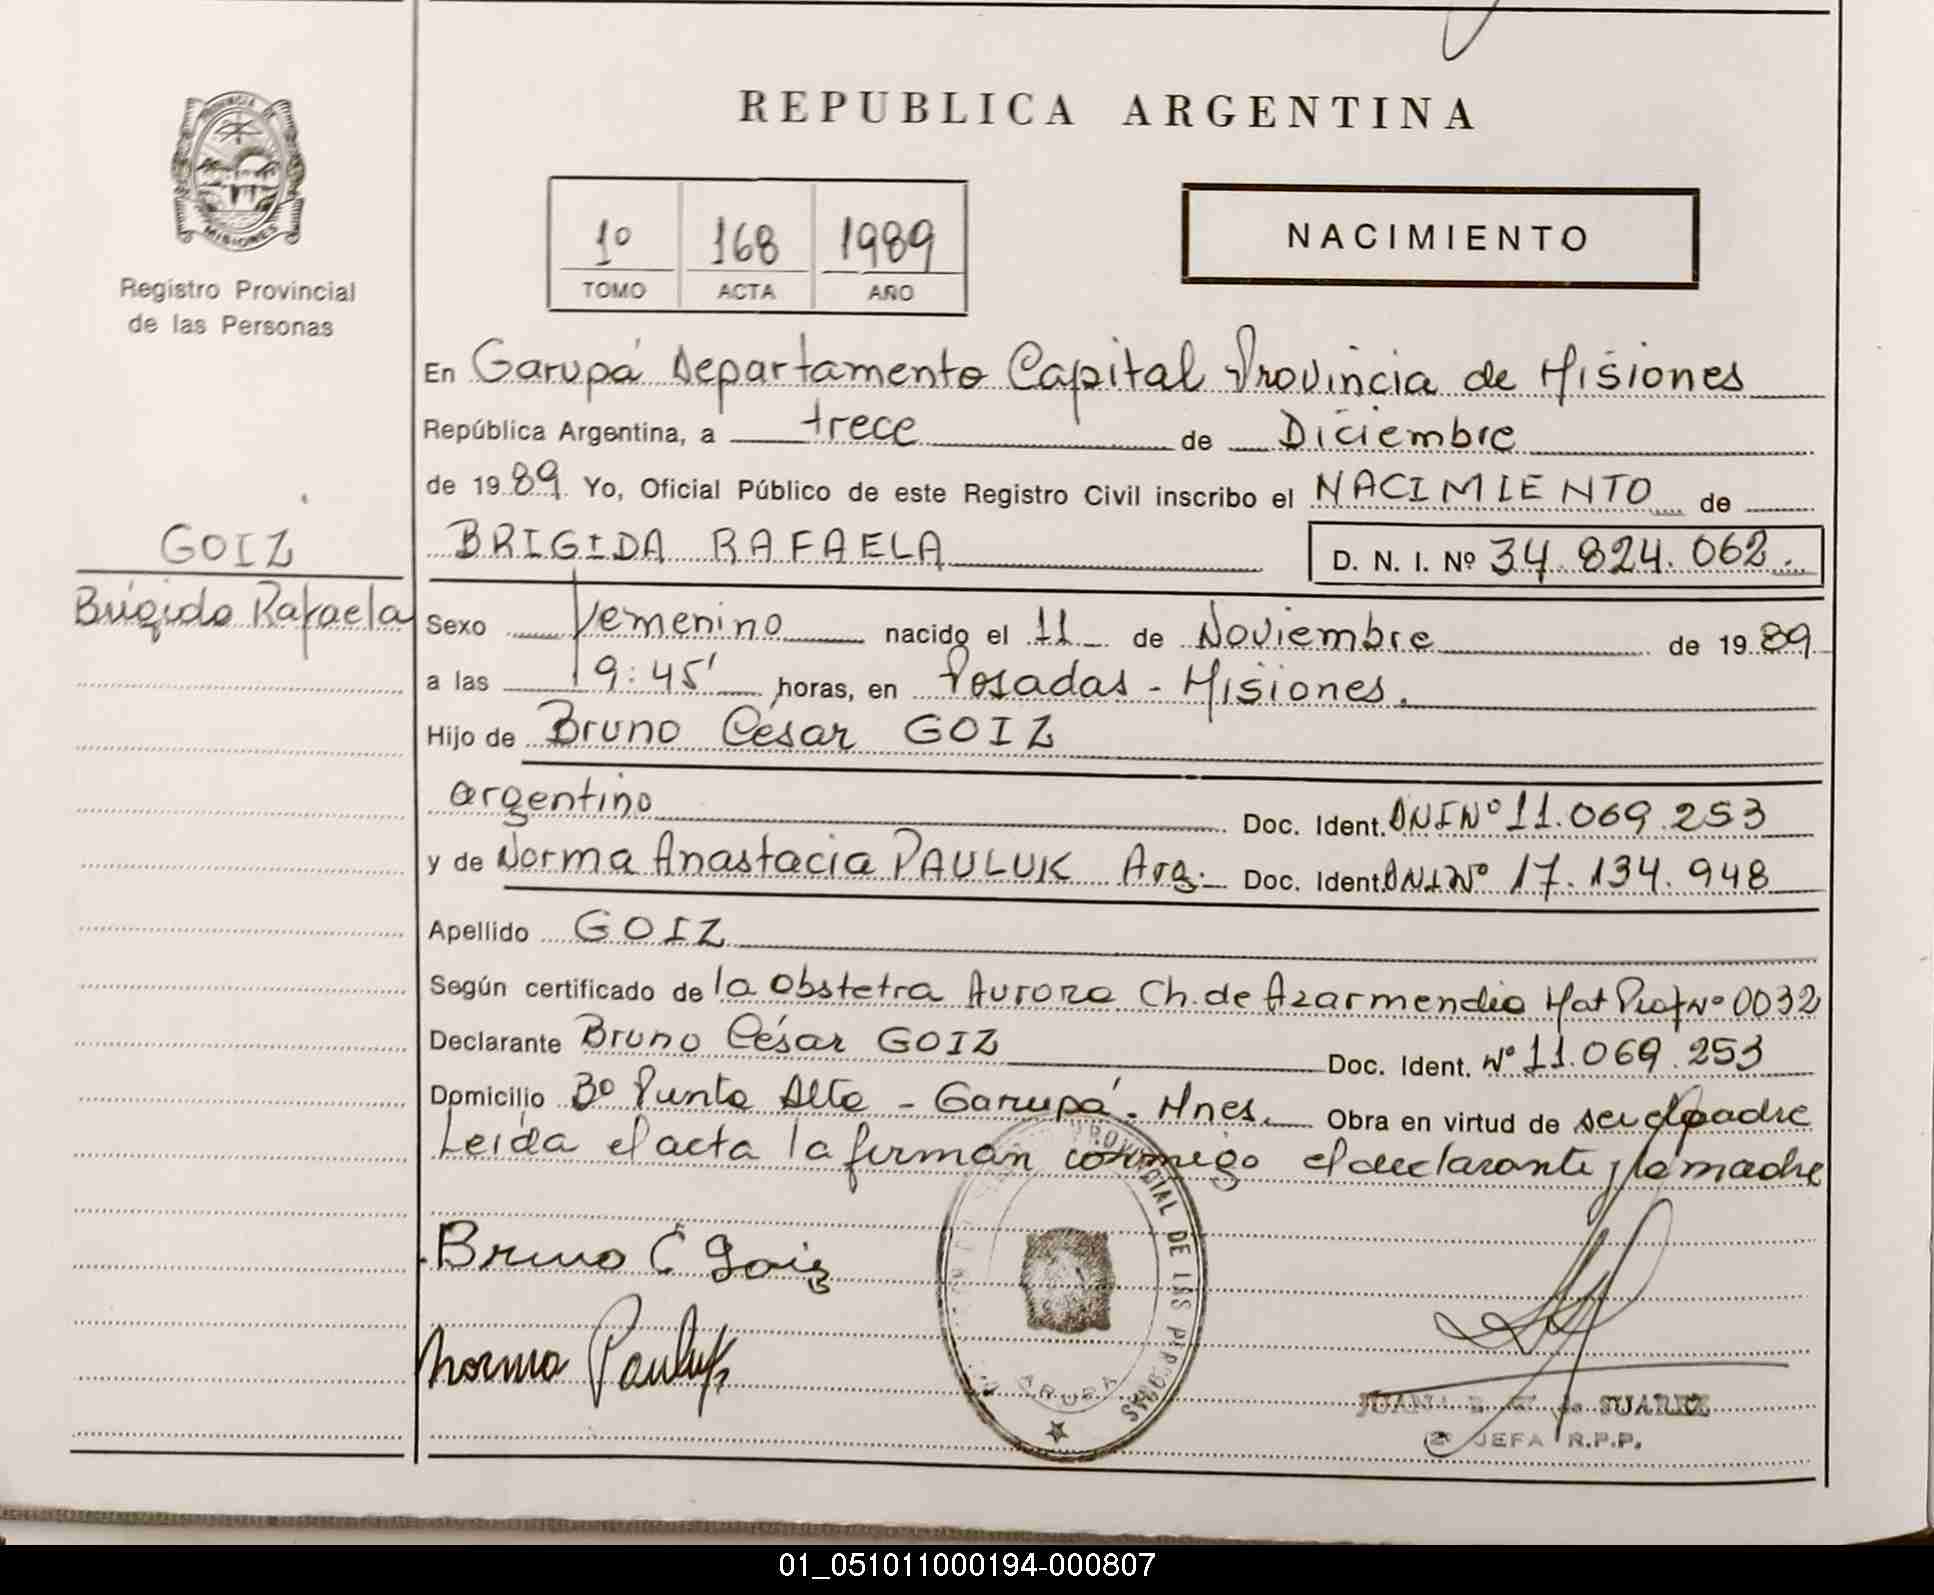 PROVINCIA DE
MISIONES
Registro Provincial
de las Personas
REPUBLICA ARGENTINA
1º 168 1989
TOMO ACTA AÑO
NACIMIENTO
En Garupá Departamento Capital Provincia de Misiones
República Argentina, a trece de Diciembre
de 1989. Yo, Oficial Público de este Registro Civil inscribo el NACIMIENTO de
GOIZ
BRIGIDA RAFAELA D. N. I. Nº 34.824.062.
Brígida Rafaela
Sexo Femenino nacido el 11 de Noviembre de 1989
a las 19:45' horas, en Posadas - Misiones.
Hijo de Bruno César GOIZ
argentino Doc. Ident. DNI Nº 11.069.253
y de Norma Anastacia PAULUK Arg. Doc. Ident. DNI Nº 17.134.948
Apellido GOIZ
Según certificado de la Obstetra Aurora Ch. de Azarmendia Mat Prof Nº 0032
Declarante Bruno César GOIZ Doc. Ident. Nº 11.069.253
Domicilio Bº Punta Alta - Garupá - Mnes. Obra en virtud de ser el padre
Leída el acta la firman conmigo el declarante y la madre
Bruno C Goiz
Norma Pauluk
PROVINCIAL DE LAS PERSONAS
GARUPA
JUANA de SUAREZ
2º JEFA R.P.P.
01_051011000194-000807